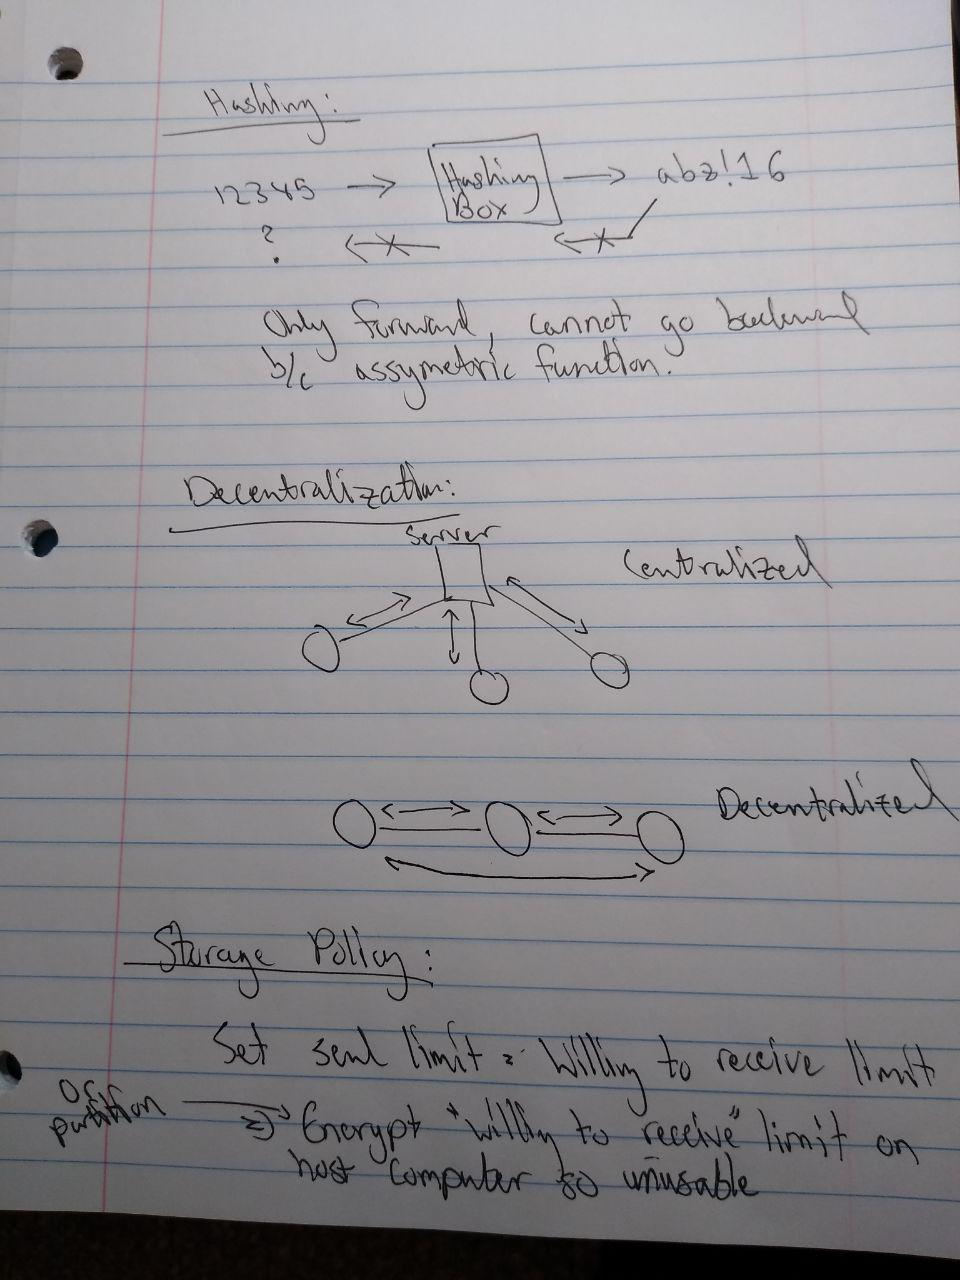 Hashing:
12345 → Hashing → abz!16
Box
?
Only forward, cannot go backward
b/c assymetric function.
Decentralization:
Server
Centralized
Decentralized
Storage Policy:
Set send limit = Willing to receive limit
Or
partition
=> Encrypt "willing to receive" limit on
host computer so unusable